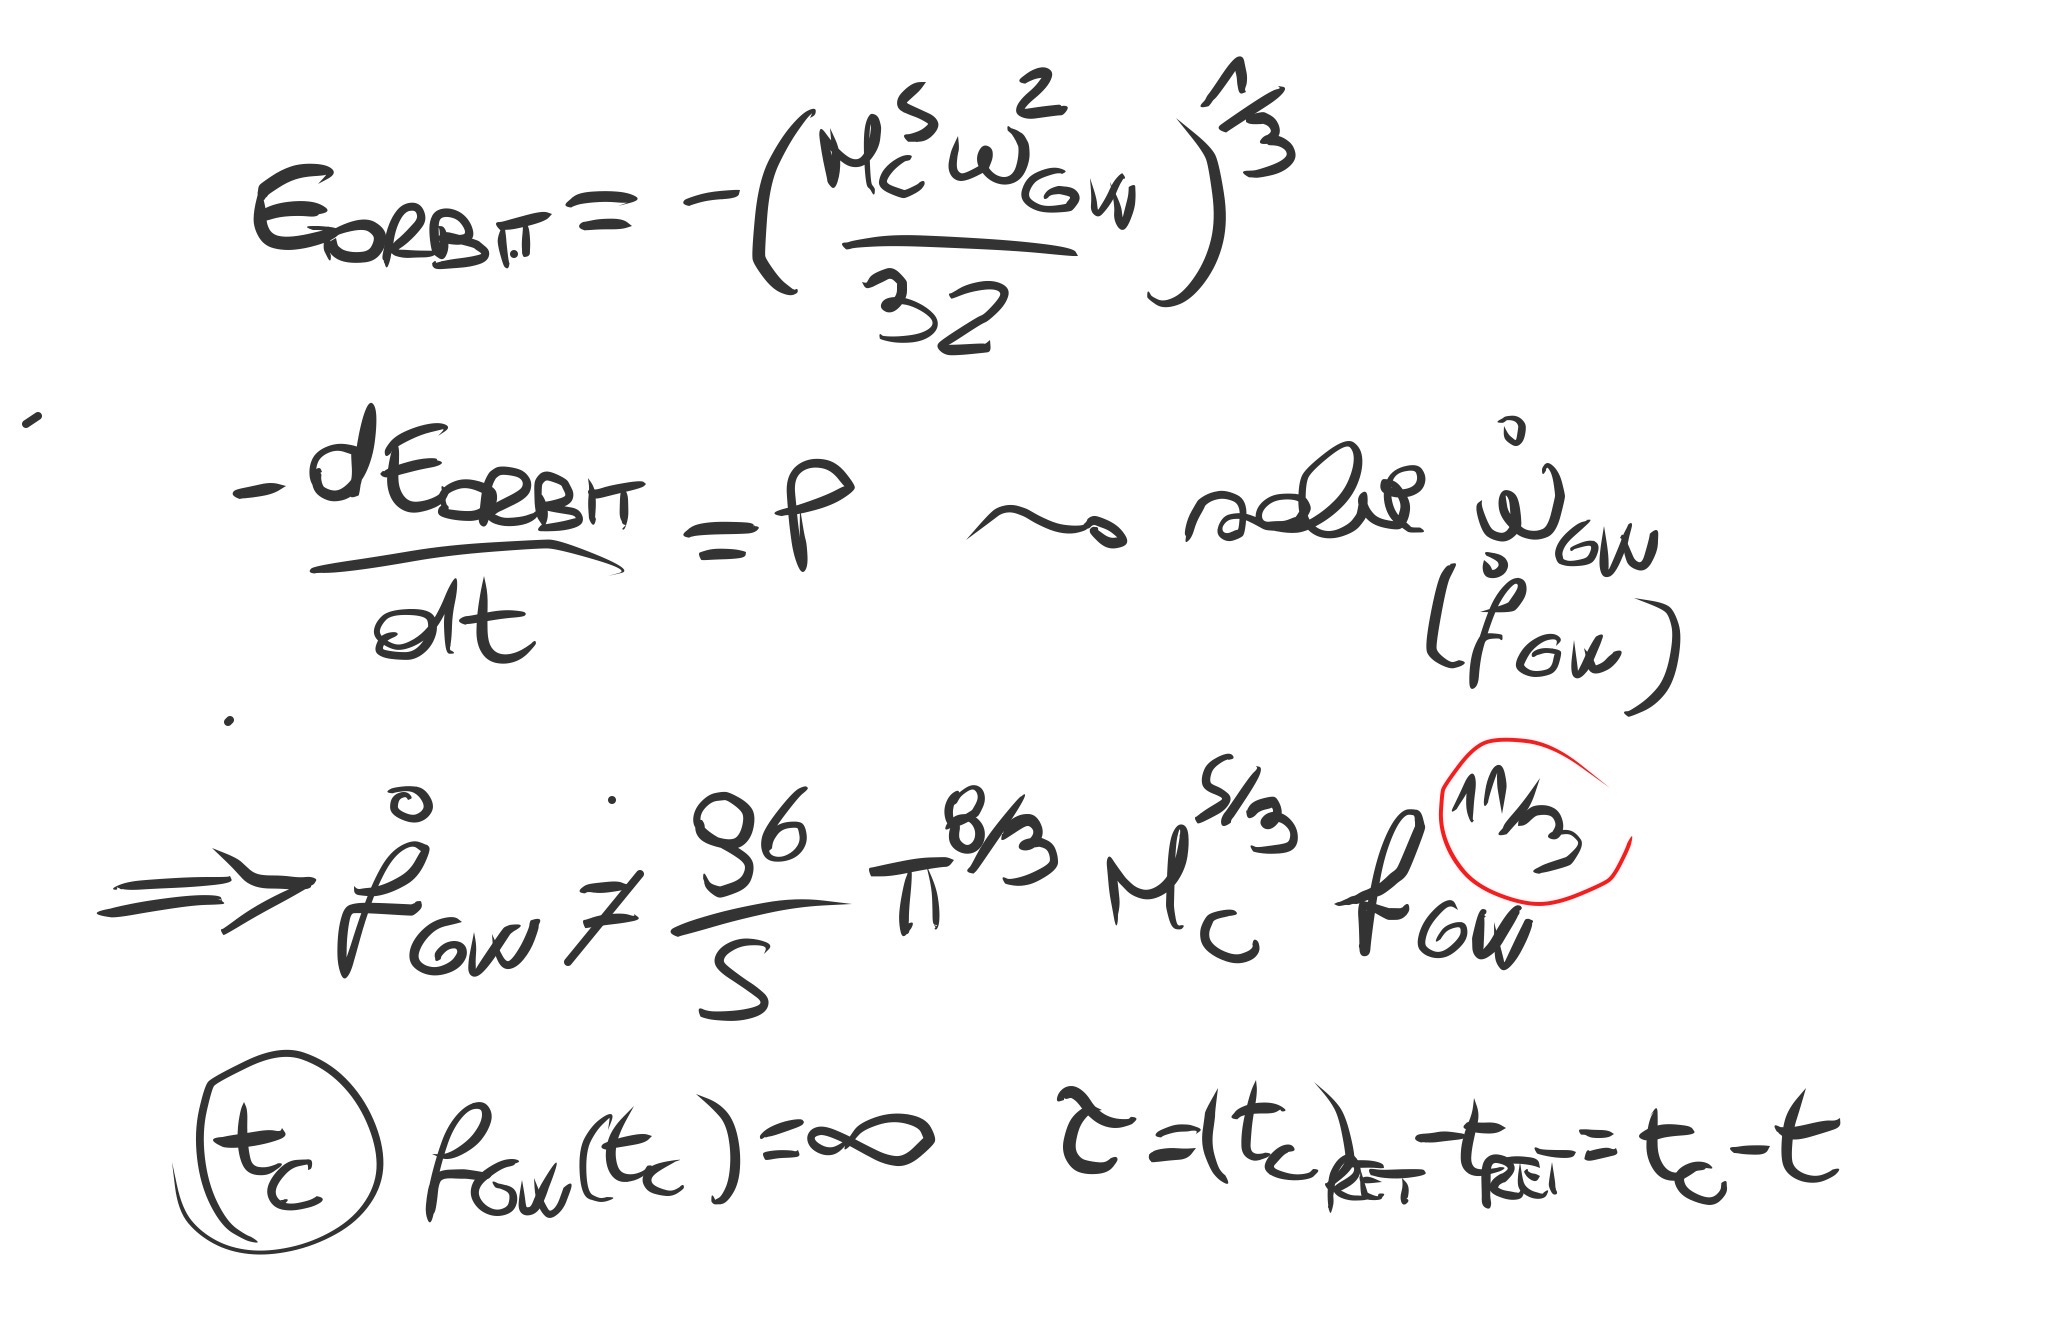 E_ORBIT = -(M_c^5 ω_GW^2 / 32)^1/3
-dE_ORBIT/dt = P ⇝ solve ω̇_GW
(ḟ_GW)
⇒ ḟ_GW = 96/5 π^8/3 M_c^5/3 f_GW^11/3
t_c f_GW(t_c) = ∞ τ = (t_c)_RET - t_RET = t_c - t